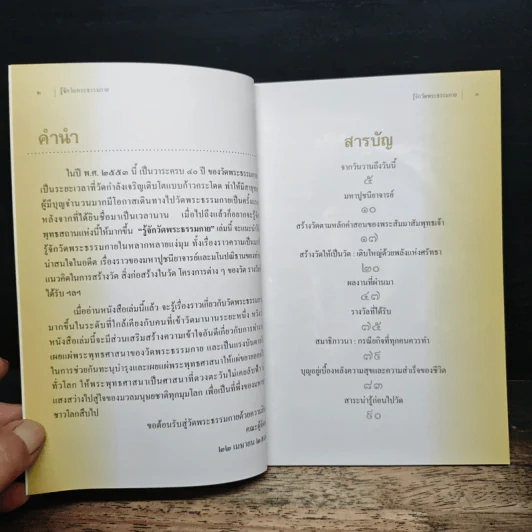 ๒
รู้จักวัดพระธรรมกาย
คำนำ
ในปี พ.ศ. ๒๕๕๓ นี้ เป็นวาระครบ ๔๐ ปี ของวัดพระธรรมกาย
เป็นระยะเวลาที่วัดกำลังเจริญเติบโตแบบก้าวกระโดด ทำให้มีสาธุ
ผู้มีบุญจำนวนมากมีโอกาสเดินทางไปวัดพระธรรมกายเป็นครั้ง
หลังจากที่ได้ยินชื่อมาเป็นเวลานาน เมื่อไปถึงแล้วก็อยากจะรู้
พุทธสถานแห่งนี้ให้มากขึ้น "รู้จักวัดพระธรรมกาย" เล่มนี้ จะแนะนำ
รู้จักวัดพระธรรมกายในหลากหลายแง่มุม ทั้งเรื่องราวความเป็น
น่าสนใจในอดีต เรื่องราวของมหาปูชนียาจารย์และมโนปณิธาน
แนวคิดในการสร้างวัด สิ่งก่อสร้างในวัด โครงการต่าง ๆ ของวัด
ได้รับ ฯลฯ
เมื่ออ่านหนังสือเล่มนี้แล้ว จะรู้เรื่องราวเกี่ยวกับวัดพระธรรม
มากขึ้นในระดับที่ใกล้เคียงกับคนที่เข้าวัดมานานระยะหนึ่ง
หนังสือเล่มนี้จะมีส่วนเสริมสร้างความเข้าใจอันดีเกี่ยวกับการทำ
เผยแผ่พระพุทธศาสนาของวัดพระธรรมกาย และเป็นแรงบันดา
ในการช่วยกันทะนุบำรุงและเผยแผ่พระพุทธศาสนาให้แผ่ขยาย
ทั่วโลก ให้พระพุทธศาสนาเป็นศาสนาที่ดวงตะวันไม่เคยลับ
แสงสว่างไปสู่ใจของมวลมนุษยชาติทุกมุมโลก เพื่อเป็นที่พึ่งของ
ชาวโลกสืบไป
ขอต้อนรับสู่วัดพระธรรมกายด้วยความ
คณะผู้จัด
๒๒ เมษายน
รู้จักวัดพระธรรมกาย
๓
สารบัญ
จากวันวานถึงวันนี้
๕
มหาปูชนียาจารย์
๑๐
สร้างวัดตามหลักคำสอนของพระสัมมาสัมพุทธเจ้า
๑๗
สร้างวัดให้เป็นวัด : เติบใหญ่ด้วยพลังแห่งศรัทธา
๒๐
ผลงานที่ผ่านมา
๔๗
รางวัลที่ได้รับ
๗๕
สมาธิภาวนา : กรณียกิจที่ทุกคนควรทำ
๗๙
บุญอยู่เบื้องหลังความสุขและความสำเร็จของชีวิต
๘๓
สาระน่ารู้ก่อนไปวัด
๙๐